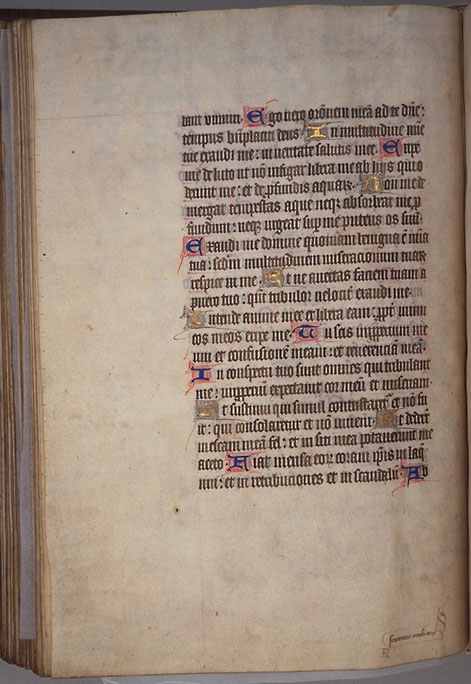 bant vinum. Ego vero orōnem meā ad te dn̄e:
tempus bn̄placiti deus. In multitudine mīe
tue exaudi me: in veritate salutis tue. Eripe
me de luto ut nō infigar: libera me ab hijs qui o
derunt me: et de pfundis aquaꝝ. Non me de
mergat tempestas aque neqꝫ absorbeat me p
fundum: neqꝫ urgeat sup me puteus os suū.
Exaudi me domine quoniam benigna ē mīa
tua: scdm multitudinem miseracionum tuaꝝ
respice in me. Et ne auertas faciem tuam a
puero tuo: qm tribulor velociter exaudi me.
Intende anime mee et libera eam: ppt inimi
cos meos eripe me. Tu scis impperium me
um et confusionē meam: et reuerenciam meā.
In conspectu tuo sunt omnes qui tribulant
me: impperium expectauit cor meū et miseriam.
Et sustinui qui simul contristaret et nō fu
it: qui consolaretur et nō inueni. Et dederūt
in escam meā fel: et in siti mea potauerunt me
aceto. Fiat mensa eoꝝ coram ipis in laq
um: et in retribuciones et in scandalū. Ob
scurentur oculi eoꝝ